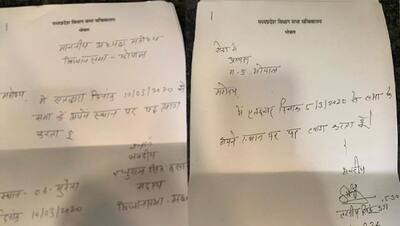 मध्यप्रदेश विधान सभा सचिवालय
भोपाल
माननीय अध्यक्ष महोदय
विधानसभा - भोपाल
महोदय
मैं एतद्द्वारा दिनांक 10/03/2020 को
सभा के अपने स्थान पर पद त्याग
करता हूँ
भवदीय
सदस्य
विधानसभा
स्थान - 06 मुरैना
दिनांक 10/03/2020
मध्यप्रदेश विधान सभा सचिवालय
भोपाल
सेवा में
अध्यक्ष
म.प्र. भोपाल
महोदय
मैं एतद्द्वारा दिनांक 5/3/2020 के सभा के
अपने स्थान पर पद त्याग करता हूँ।
भवदीय